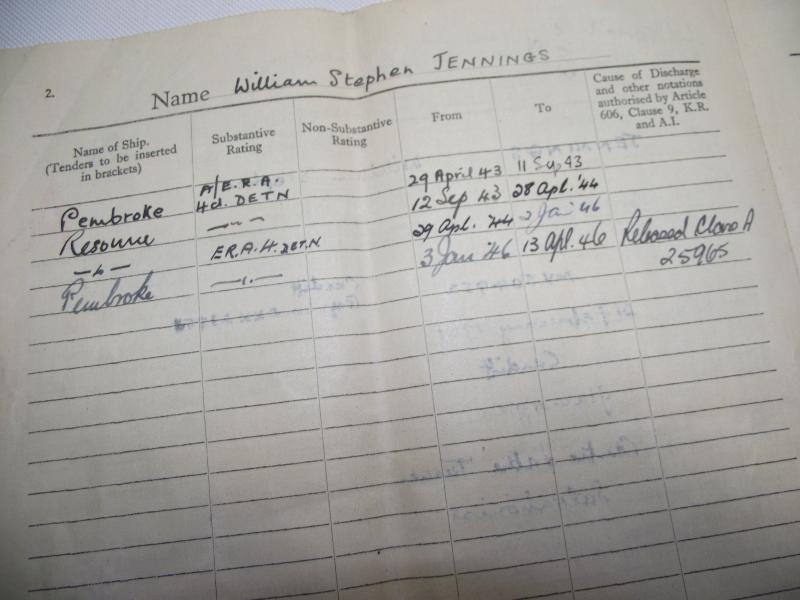 2.
Name William Stephen JENNINGS
Name of Ship.
(Tenders to be inserted
in brackets)
Substantive
Rating
Non-Substantive
Rating
From
To
Cause of Discharge
and other notations
authorised by Article
606, Clause 9, K.R.
and A.I.
Pembroke A/E.R.A. 4cl. DETN 29 April 43 11 Sep 43
Resource —"— 12 Sep 43 28 Apl. '44
—"— E.R.A.4. DETN. 29 Apl. '44 2 Jan '46
Pembroke —"— 3 Jan '46 13 Apl. 46 Released Class A
25965